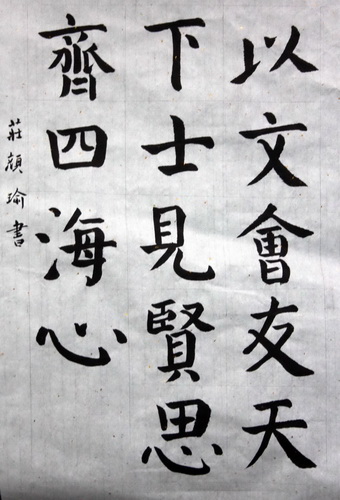 以文會友天
下士見賢思
齊四海心
莊顏瑜書